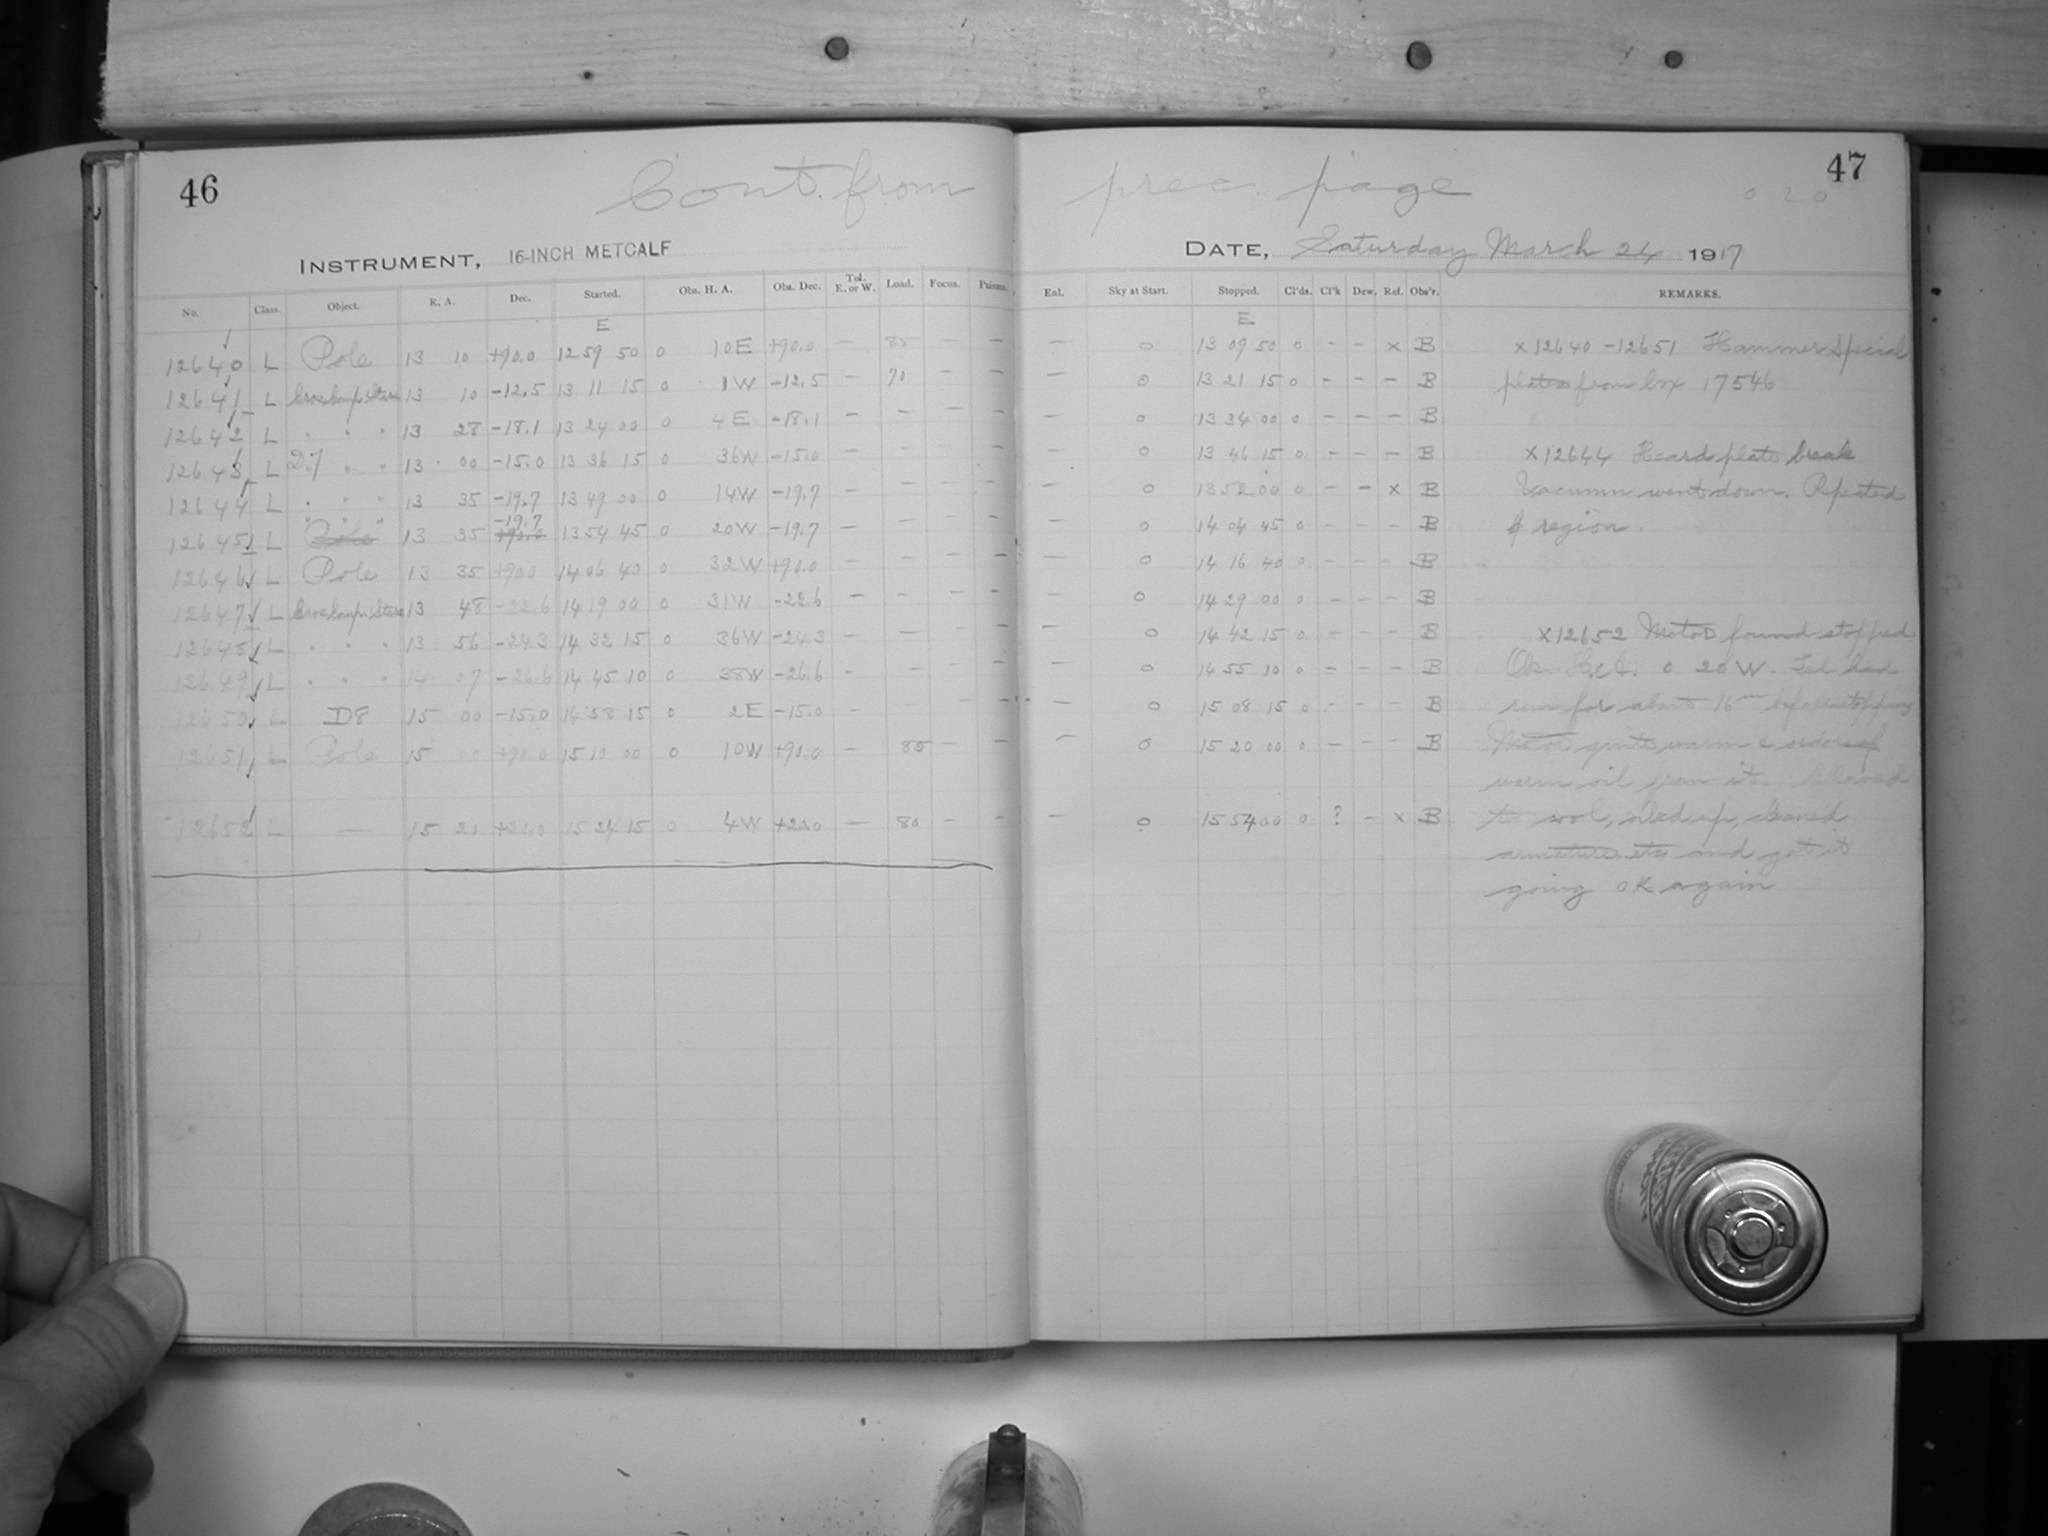 46
47
Cont. from prec. page
0 20
INSTRUMENT, 16-INCH METCALF
DATE, Saturday March 24 1917
No. Class. Object. R. A. Dec. Started. Obs. H. A. Obs. Dec. Tel. E. or W. Load. Focus. Enl. Sky at Start. Stopped. Cl'ds. Cl'k Dew. Ref. Obs'r. REMARKS.
E E
12640 L Pole 13 10 +90.0 12 59 50 0 10E +90.0 — 85 — — — 0 13 09 50 0 - - x B x12640 -12651 Hammer Special
12641 L 13 10 -12.5 13 11 15 0 1W -12.5 — 70 - — — 0 13 21 15 0 - - - B plates from box 17546
12642 L " " " 13 28 -18.1 13 24 00 0 4E -18.1 — - — — — 0 13 34 00 0 - - - B
12643 L D.7 " " 13 00 -15.0 13 36 15 0 36W -15.0 — - — — — 0 13 46 15 0 - - - B x12644 Heard plate break
12644 L " " " 13 35 -19.7 13 49 00 0 14W -19.7 — - — — — 0 13 52 00 0 - - x B Vacumn went down. Repeated
12645 L " " " 13 35 -19.7 13 54 45 0 20W -19.7 — - — — — 0 14 04 45 0 - - - B & region.
12646 L Pole 13 35 +90.0 14 06 40 0 32W +90.0 — - — — — 0 14 16 40 0 - - - B
12647 L 13 48 -22.6 14 19 00 0 31W -22.6 — - — — — 0 14 29 00 0 - - - B
12648 L " " " 13 56 -24.3 14 32 15 0 36W -24.3 — - — — — 0 14 42 15 0 - - - B x12652 Motor found stopped
12649 L " " " 14 07 -26.6 14 45 10 0 38W -26.6 - - — — — 0 14 55 10 0 - - - B Obs. H.A. 0 20 W. Tel had
12650 L D8 15 00 -15.0 14 58 15 0 2E -15.0 — - — — — 0 15 08 15 0 - - - B run for about 16m before stopping
12651 L Pole 15 00 +90.0 15 10 00 0 10W +90.0 — 85 — — — 0 15 20 00 0 - - - B Motor quite warm & odor of
warm oil from it. Allowed
12652 L — 15 20 +20.0 15 24 15 0 4W +20.0 — 80 - - — 0 15 54 00 0 ? - x B to cool, oiled up, cleaned
armature, etc and got it
going OK again